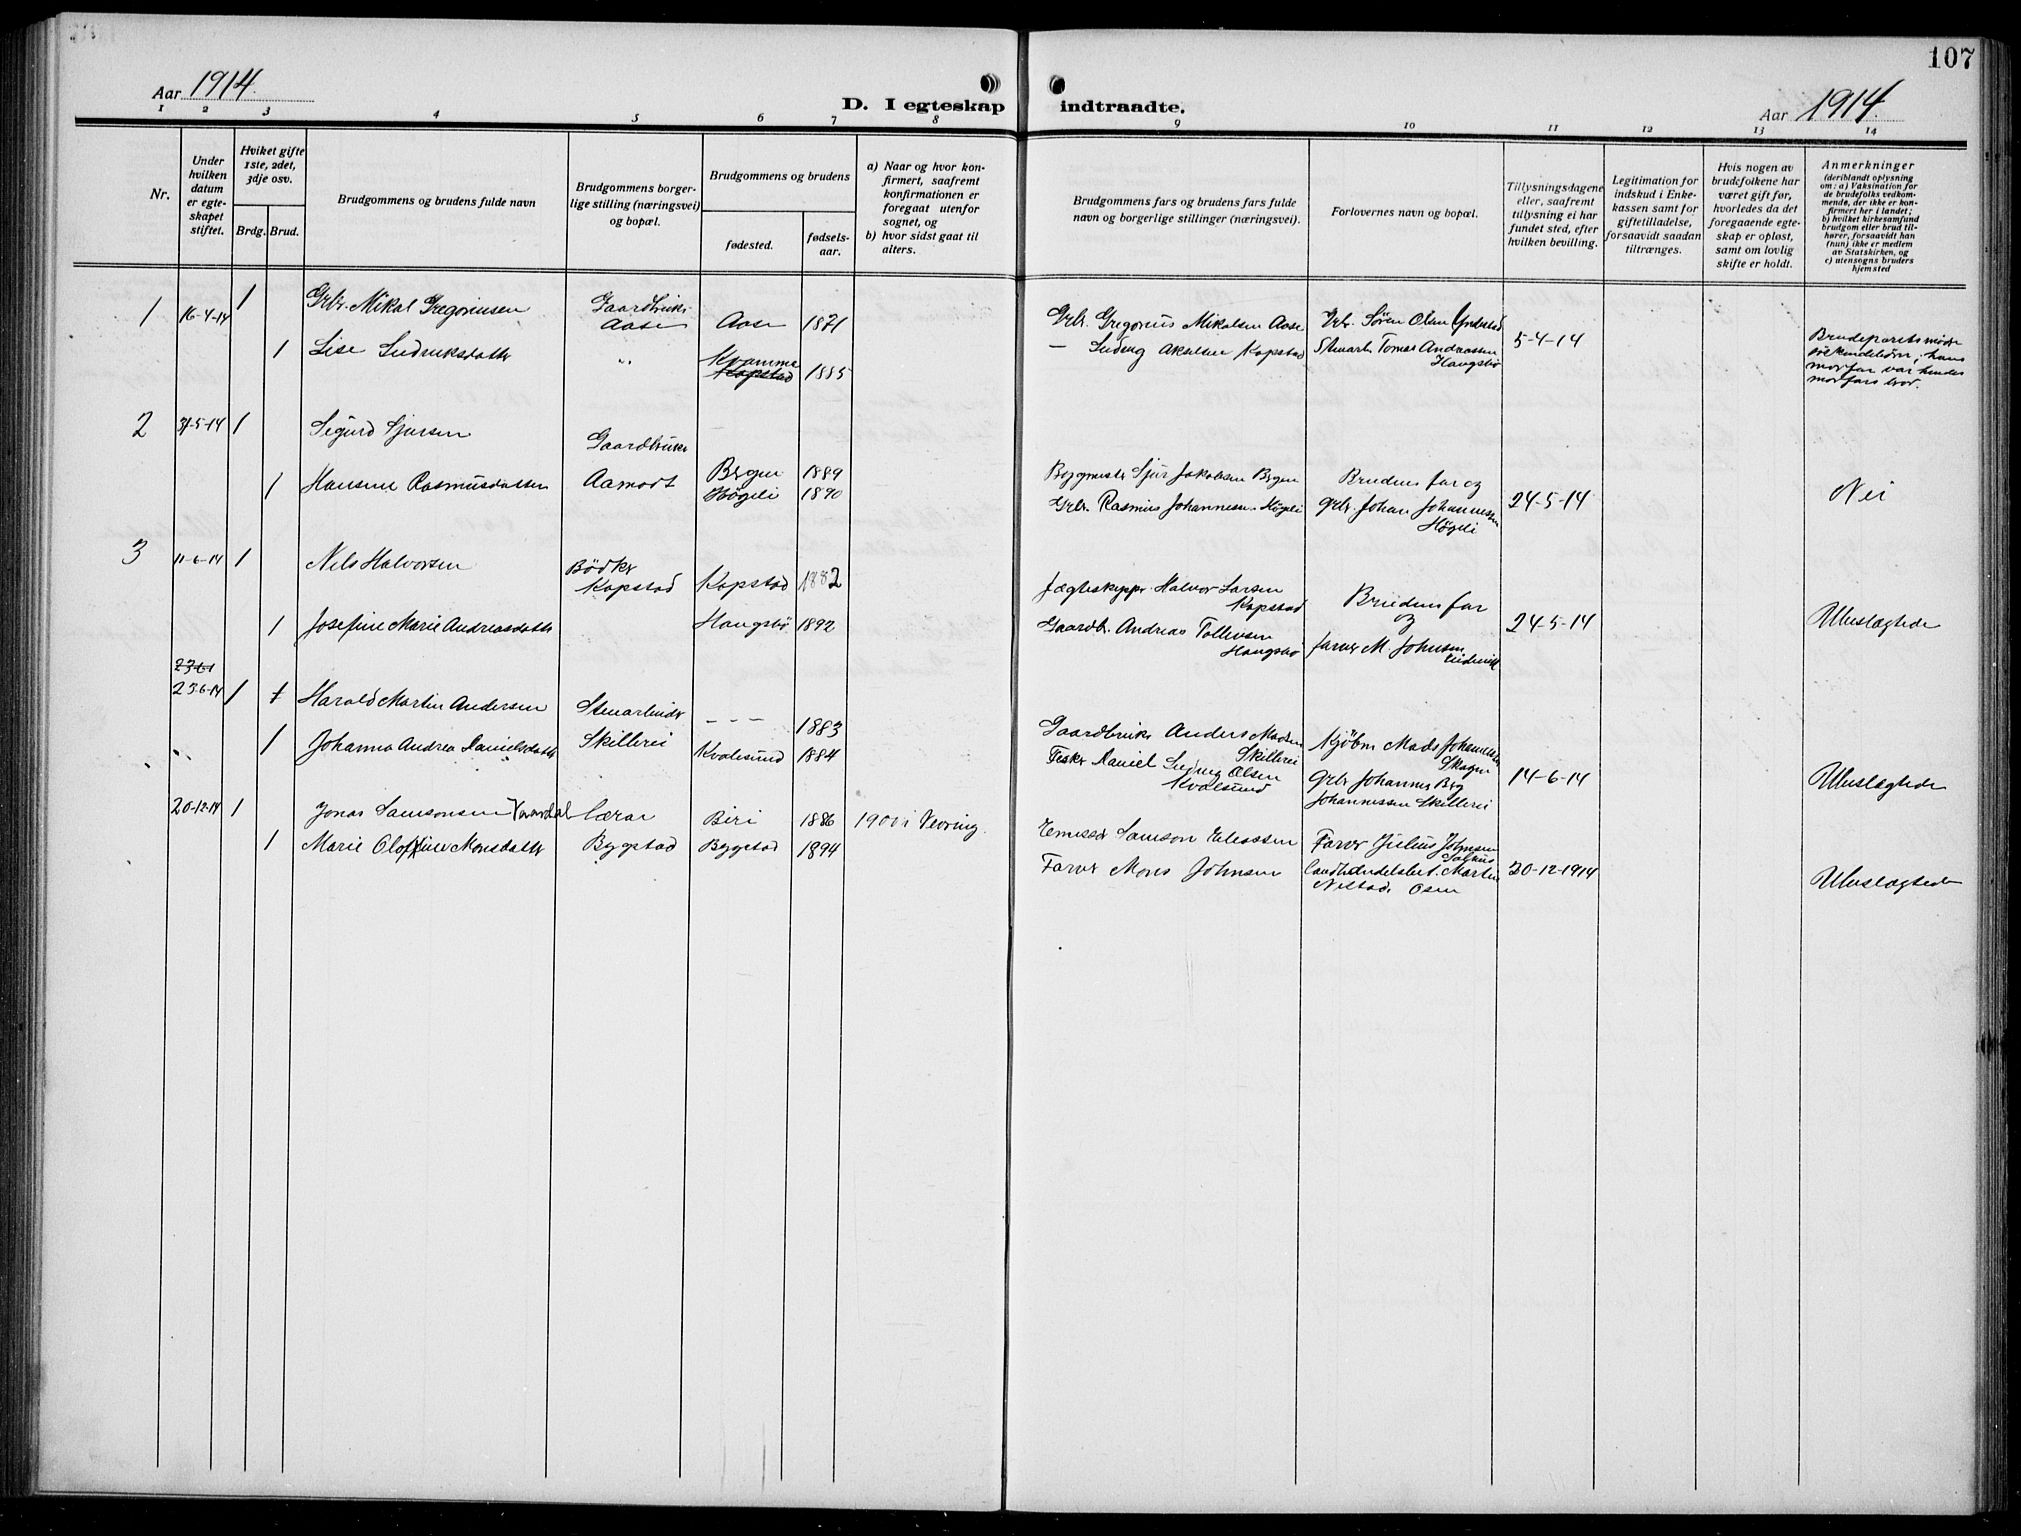 107
Aar 1914.
D. I egteskap indtraadte.
Aar 1914.
1 2 3 4 5 6 7 8 9 10 11 12 13 14
Nr.
Under hvilken datum er egteskapet stiftet.
Hviket gifte 1ste, 2det, 3dje osv.
Brdg. Brud.
Brudgommens og brudens fulde navn
Brudgommens borgerlige stilling (næringsvei) og bopæl.
Brudgommens og brudens
fødested.
fødselsaar.
a) Naar og hvor konfirmert, saafremt konfirmationen er foregaat utenfor sognet, og
b) hvor sidst gaat til alters.
Brudgommens fars og brudens fars fulde navn og borgerlige stillinger (næringsvei).
Forlovernes navn og bopæl.
Tillysningsdagene eller, saafremt tillysning ei har fundet sted, efter hvilken bevilling.
Legitimation for indskud i Enkekassen samt for giftetilladelse, forsaavidt saadan tiltrænges.
Hvis nogen av brudefolkene har været gift før, hvorledes da det foregaaende egteskap er opløst, samt om lovlig skifte er holdt.
Anmerkninger
(deriblandt oplysning om: a) Vaksination for de brudefolks vedkommende, der ikke er konfirmert her i landet; b) hvilket kirkesamfund brudgom eller brud tilhører, forsaavidt han (hun) ikke er medlem av Statskirken, og c) utensogns bruders hjemsted
1 16-4-14 1 Grbr. Mikal Gregoriussen Gaardbruker Aase Aase 1871
Grbr. Gregorius Mikalsen Aase Grbr. Søren Olsen Yndestad
1 Lise Ludvuksdatter " Kvamme Kopstad 1885
— Ludvug Akselsen Kopstad Stenarb. Tomas Andreassen Haugsbø
5-4-14
Brudeparets mødre søskendebørn, hans morfar var hendes morfars bror.
2 31-5-14 1 Sigurd Sjursen Gaardbruker
Bergen 1889
1 Hansine Rasmusdatter Aamodt Høgeli 1890
Bygmester Sjur Jakobsen Bergen Brudens far og
Grbr. Rasmus Johannesen Høgeli grbr. Johan Johannessen Høgeli
24-5-14
Nei
3 11-6-14 1 Nils Halvorsen Bødker Kopstad Kopstad 1882
Jægteskipper Halvor Larsen Kopstad Brudens far og
1 Josefine Marie Andreasdatter Haugsbø 1892
Gaardbr. Andreas Tollevsen Haugsbø farver M. Johnsen
24-5-14
Ubeslægtede
23-6-1
23-6-14 1 1 Harald Martin Andersen Stenarbeider - - - 1883
Gaardbruker Anders Madsen Skillerei Kjøbm Mads Johannessen Skagen
1 Johanna Andrea Danielsdatter Skillerei Kvalesund 1884
Fisker Daniel Ludvug Olsen Kvalsund Grbr Johannes Berg Johannessen Skillerei
14-6-14
Ubeslægtede
20-12-14 1 Jonas Samsonsen Varardal Lærer Biri 1886 1900 i Vevring.
Emissær Samson Eliassen Farver Julius Johnsen
1 Marie Oloffine Monsdatter Bygstad Bygstad 1894
Farver Mons Johnsen Landhandelsbet. Martin Nilstad Osen
20-12-1914
Ubeslægtede